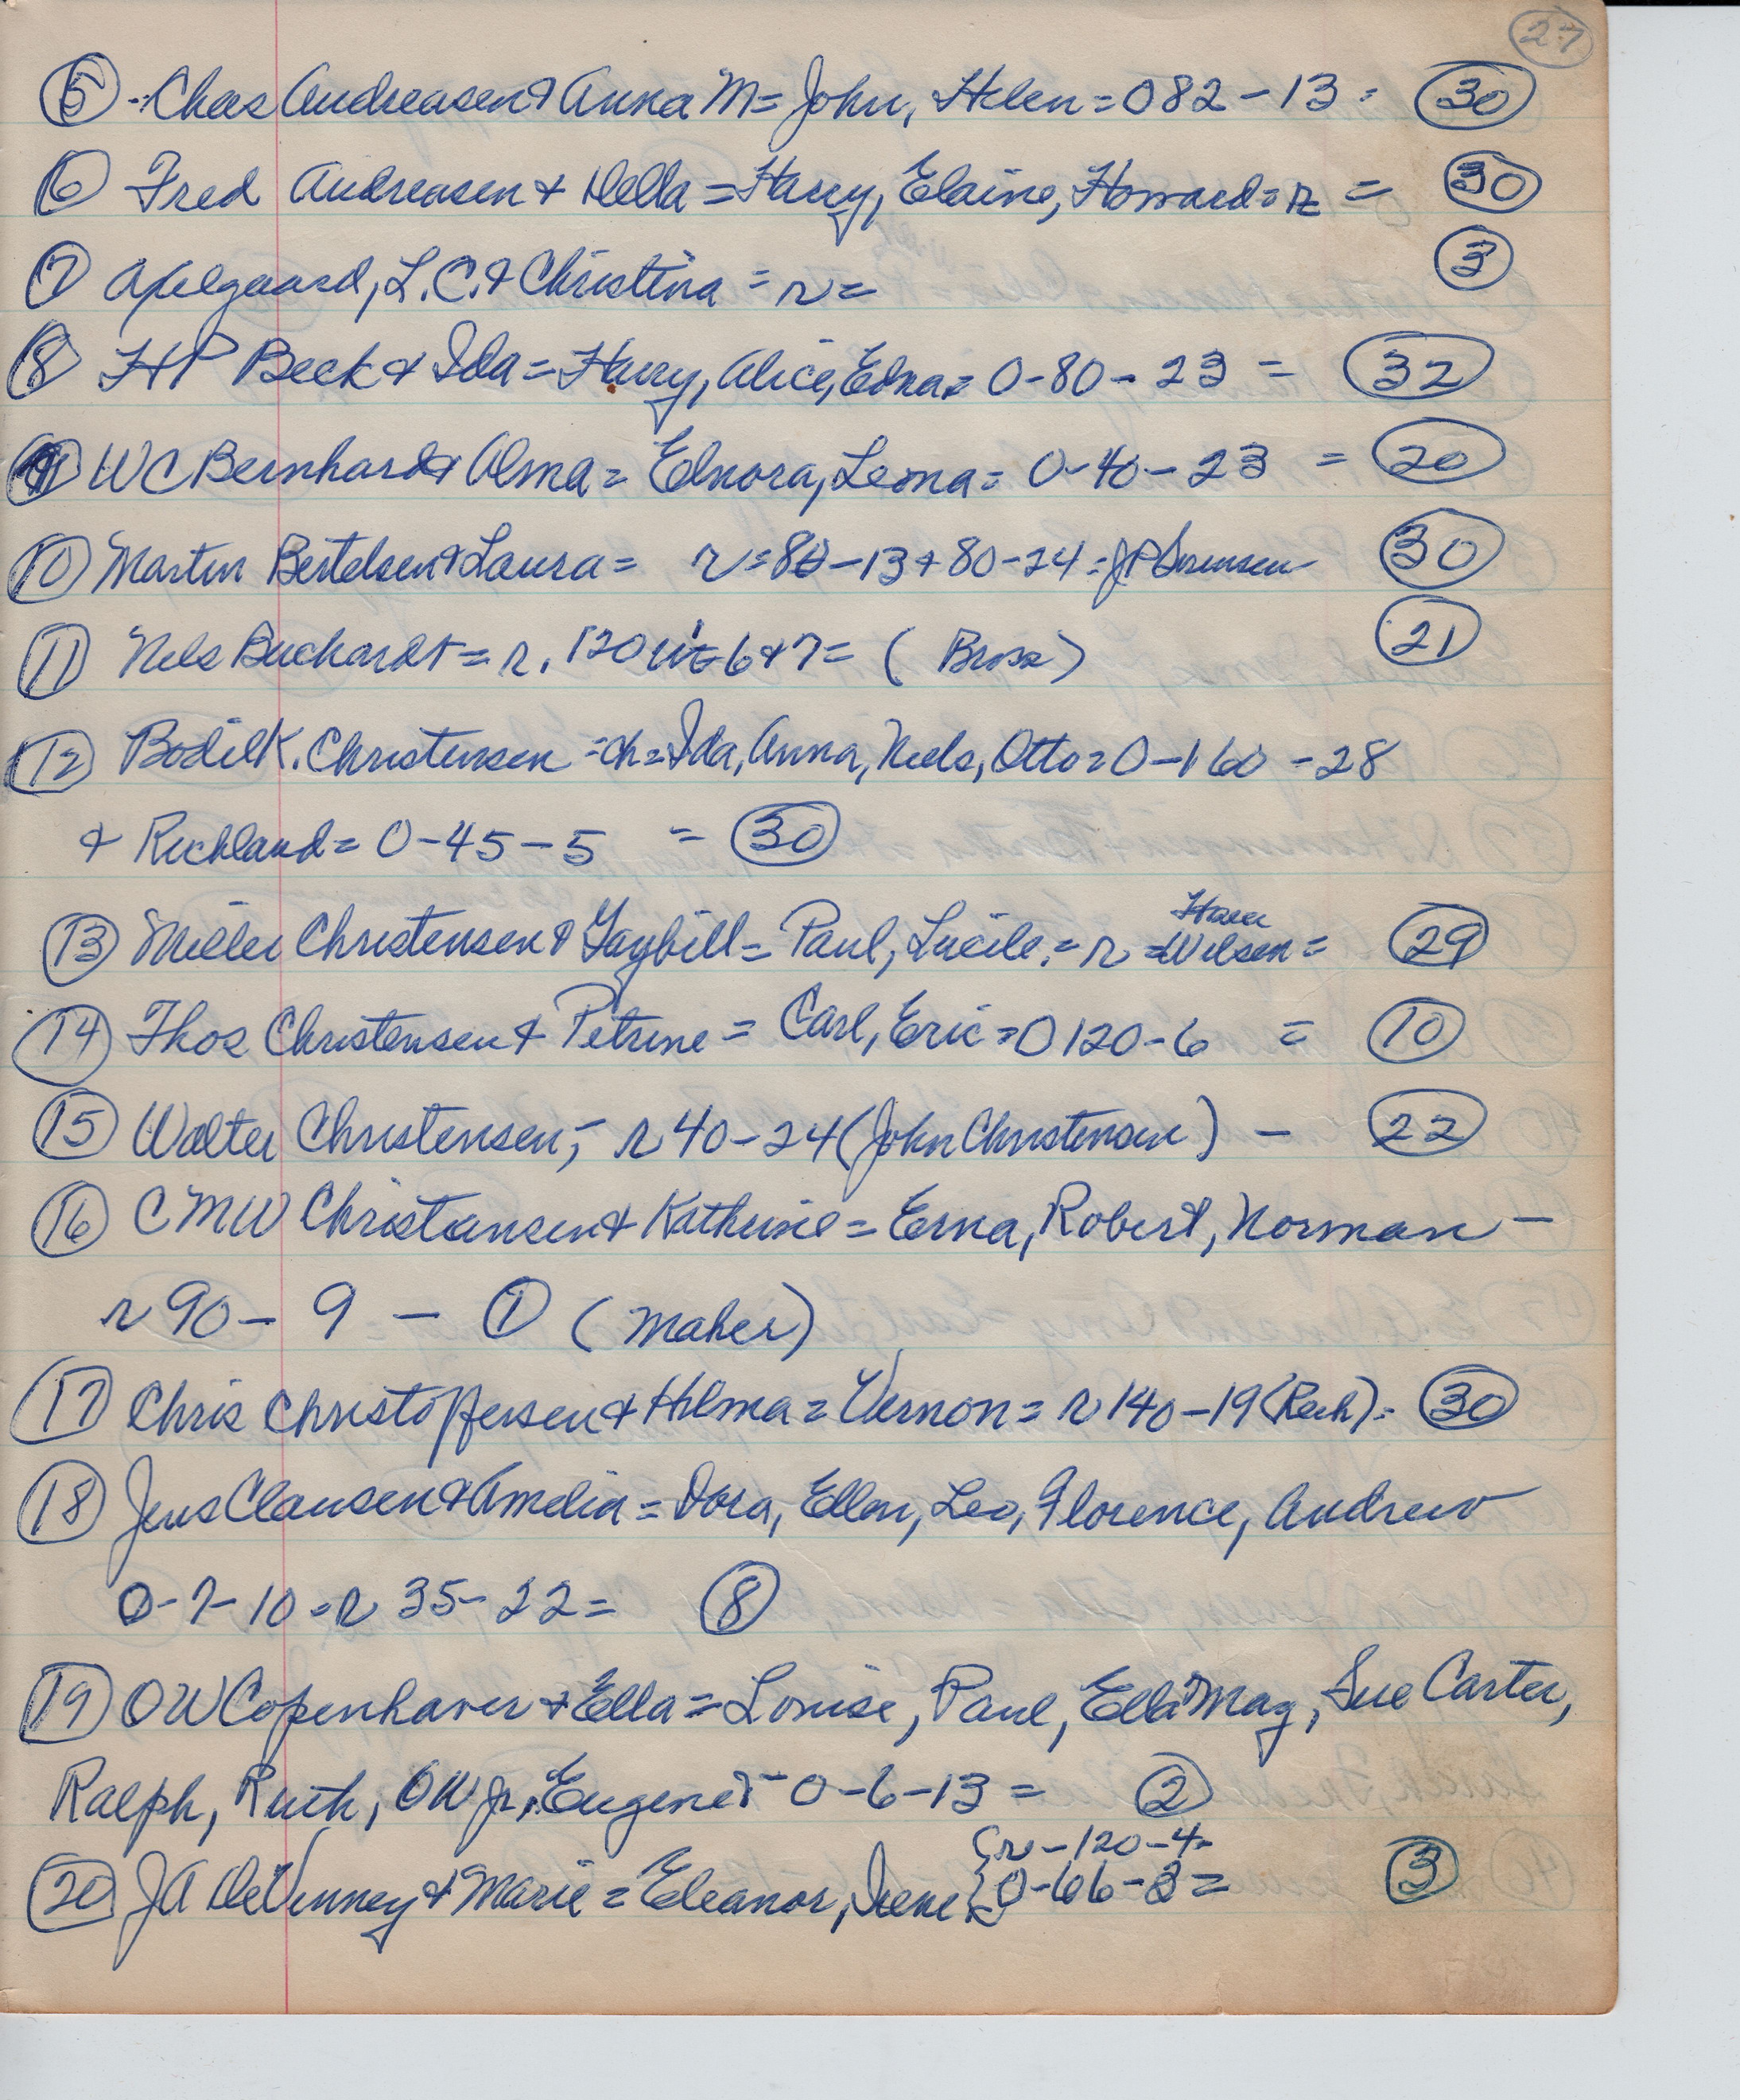 27
5 - Chas Andreasen & Anna M = John, Helen = 0 82 - 13 = 30
6 Fred Andreasen & Della = Harry, Elaine, Howard = r = 30
7 Axelgaard, L.C. & Christina = r = 3
8 HP Beck & Ida = Harry, Alice, Edna = 0-80-23 = 32
9 WC Bernhardt & Alma = Elnora, Leona = 0-40-23 = 20
10 Martin Bertelsen & Laura = r = 80-13 + 80-24 = JP Sorensen 30
11 Nels Buchardt = r. 120 6 & 7 = ( ) 21
12 Bodil K. Christensen = ch = Ida, Anna, Niels, Otto = 0-160-28
& Richland = 0-45-5 = 30
13 Miller Christensen & Gaybill = Paul, Lucile. = r = Wilson = 29
14 Thos Christensen & Petrine = Carl, Eric = 0 120-6 = 10
15 Walter Christensen, - r 40-24 (John Christensen) - 22
16 CMW Christiansen & Katherine = Erna, Robert, Norman -
r 90 - 9 - 1 (Maher)
17 Chris Christoffersen & Hilma = Vernon = r 140-19 (Rech) = 30
18 Jens Clausen & Amelia = Dora, Ellen, Leo, Florence, Andrew
0-7-10 = r 35-22 = 8
19 OW Copenhaver & Ella = Louise, Paul, Ella May, Sue Carter,
Ralph, Ruth, OW Jr, Eugene - 0-6-13 = 2
{r - 120-4-
20 JA DeVinney & Marie = Eleanor, Irene {0-66-3 = 3